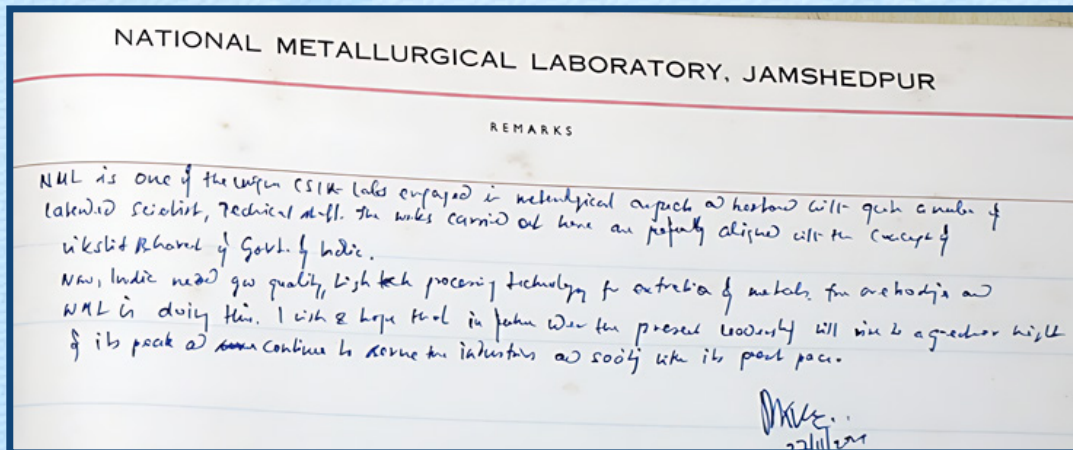 NATIONAL METALLURGICAL LABORATORY, JAMSHEDPUR
REMARKS
NML is one of the CSIR Labs engaged in metallurgical and number of
Scientist, Technical staff. The works carried out here are perfectly aligned with the concept of
Vikshit Bharat of Govt. of India.
Now, India need quality, high tech processing technology for extraction of metals from and
NML is doing this. I wish & hope that in future the present leadership will rise to a greater height
of its peak and continue to serve the industries and society with its pace.